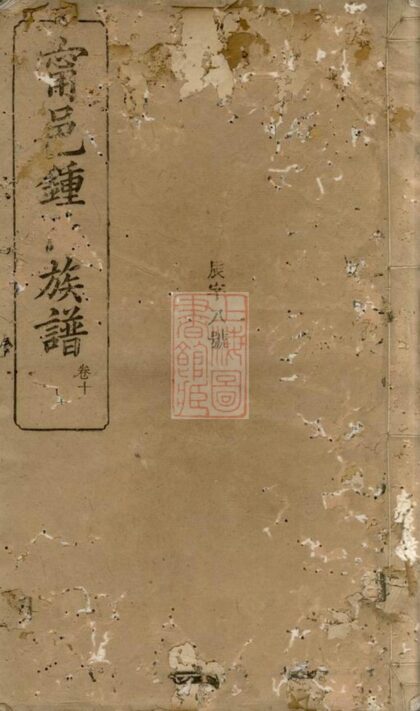 甯邑鍾氏族譜
卷十
辰字八號
上海圖書館藏